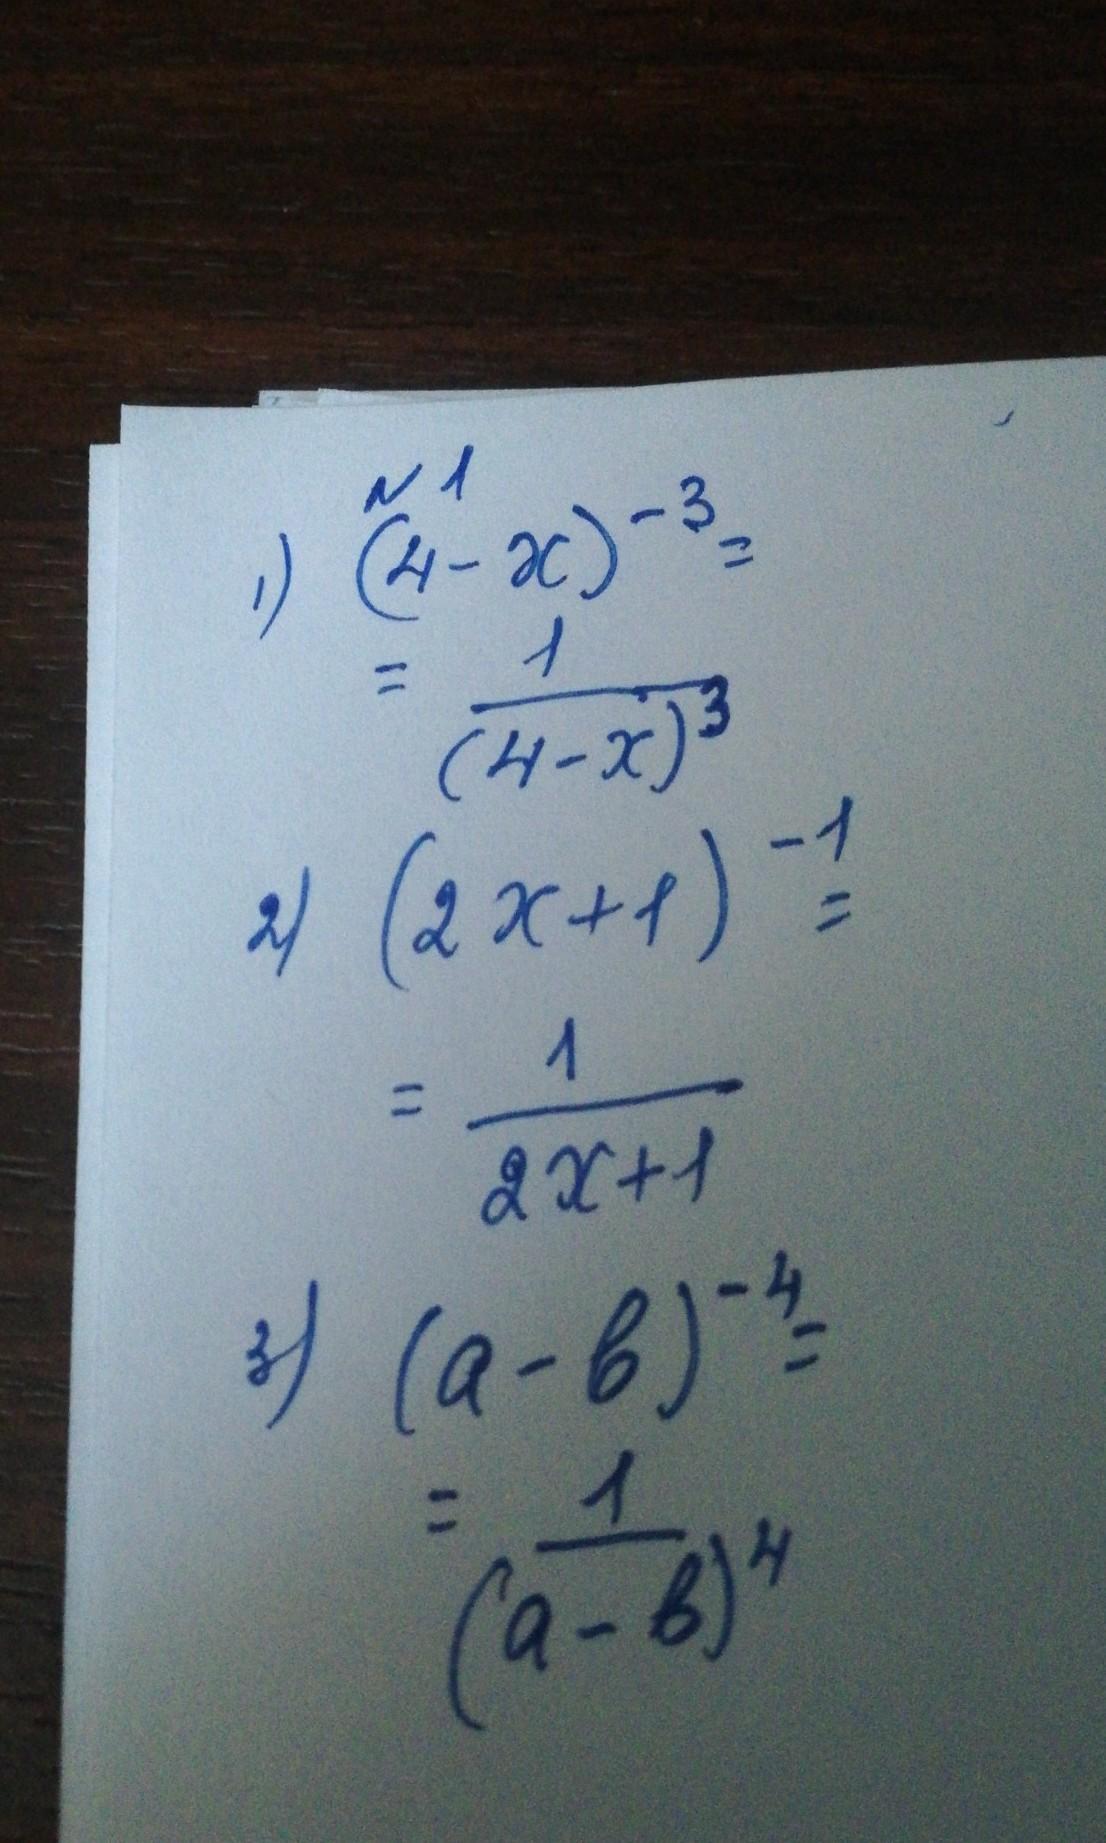 №1
1) (4-x)⁻³=
= 1/(4-x)³
2) (2x+1)⁻¹=
= 1/2x+1
3) (a-b)⁻⁴=
= 1/(a-b)⁴